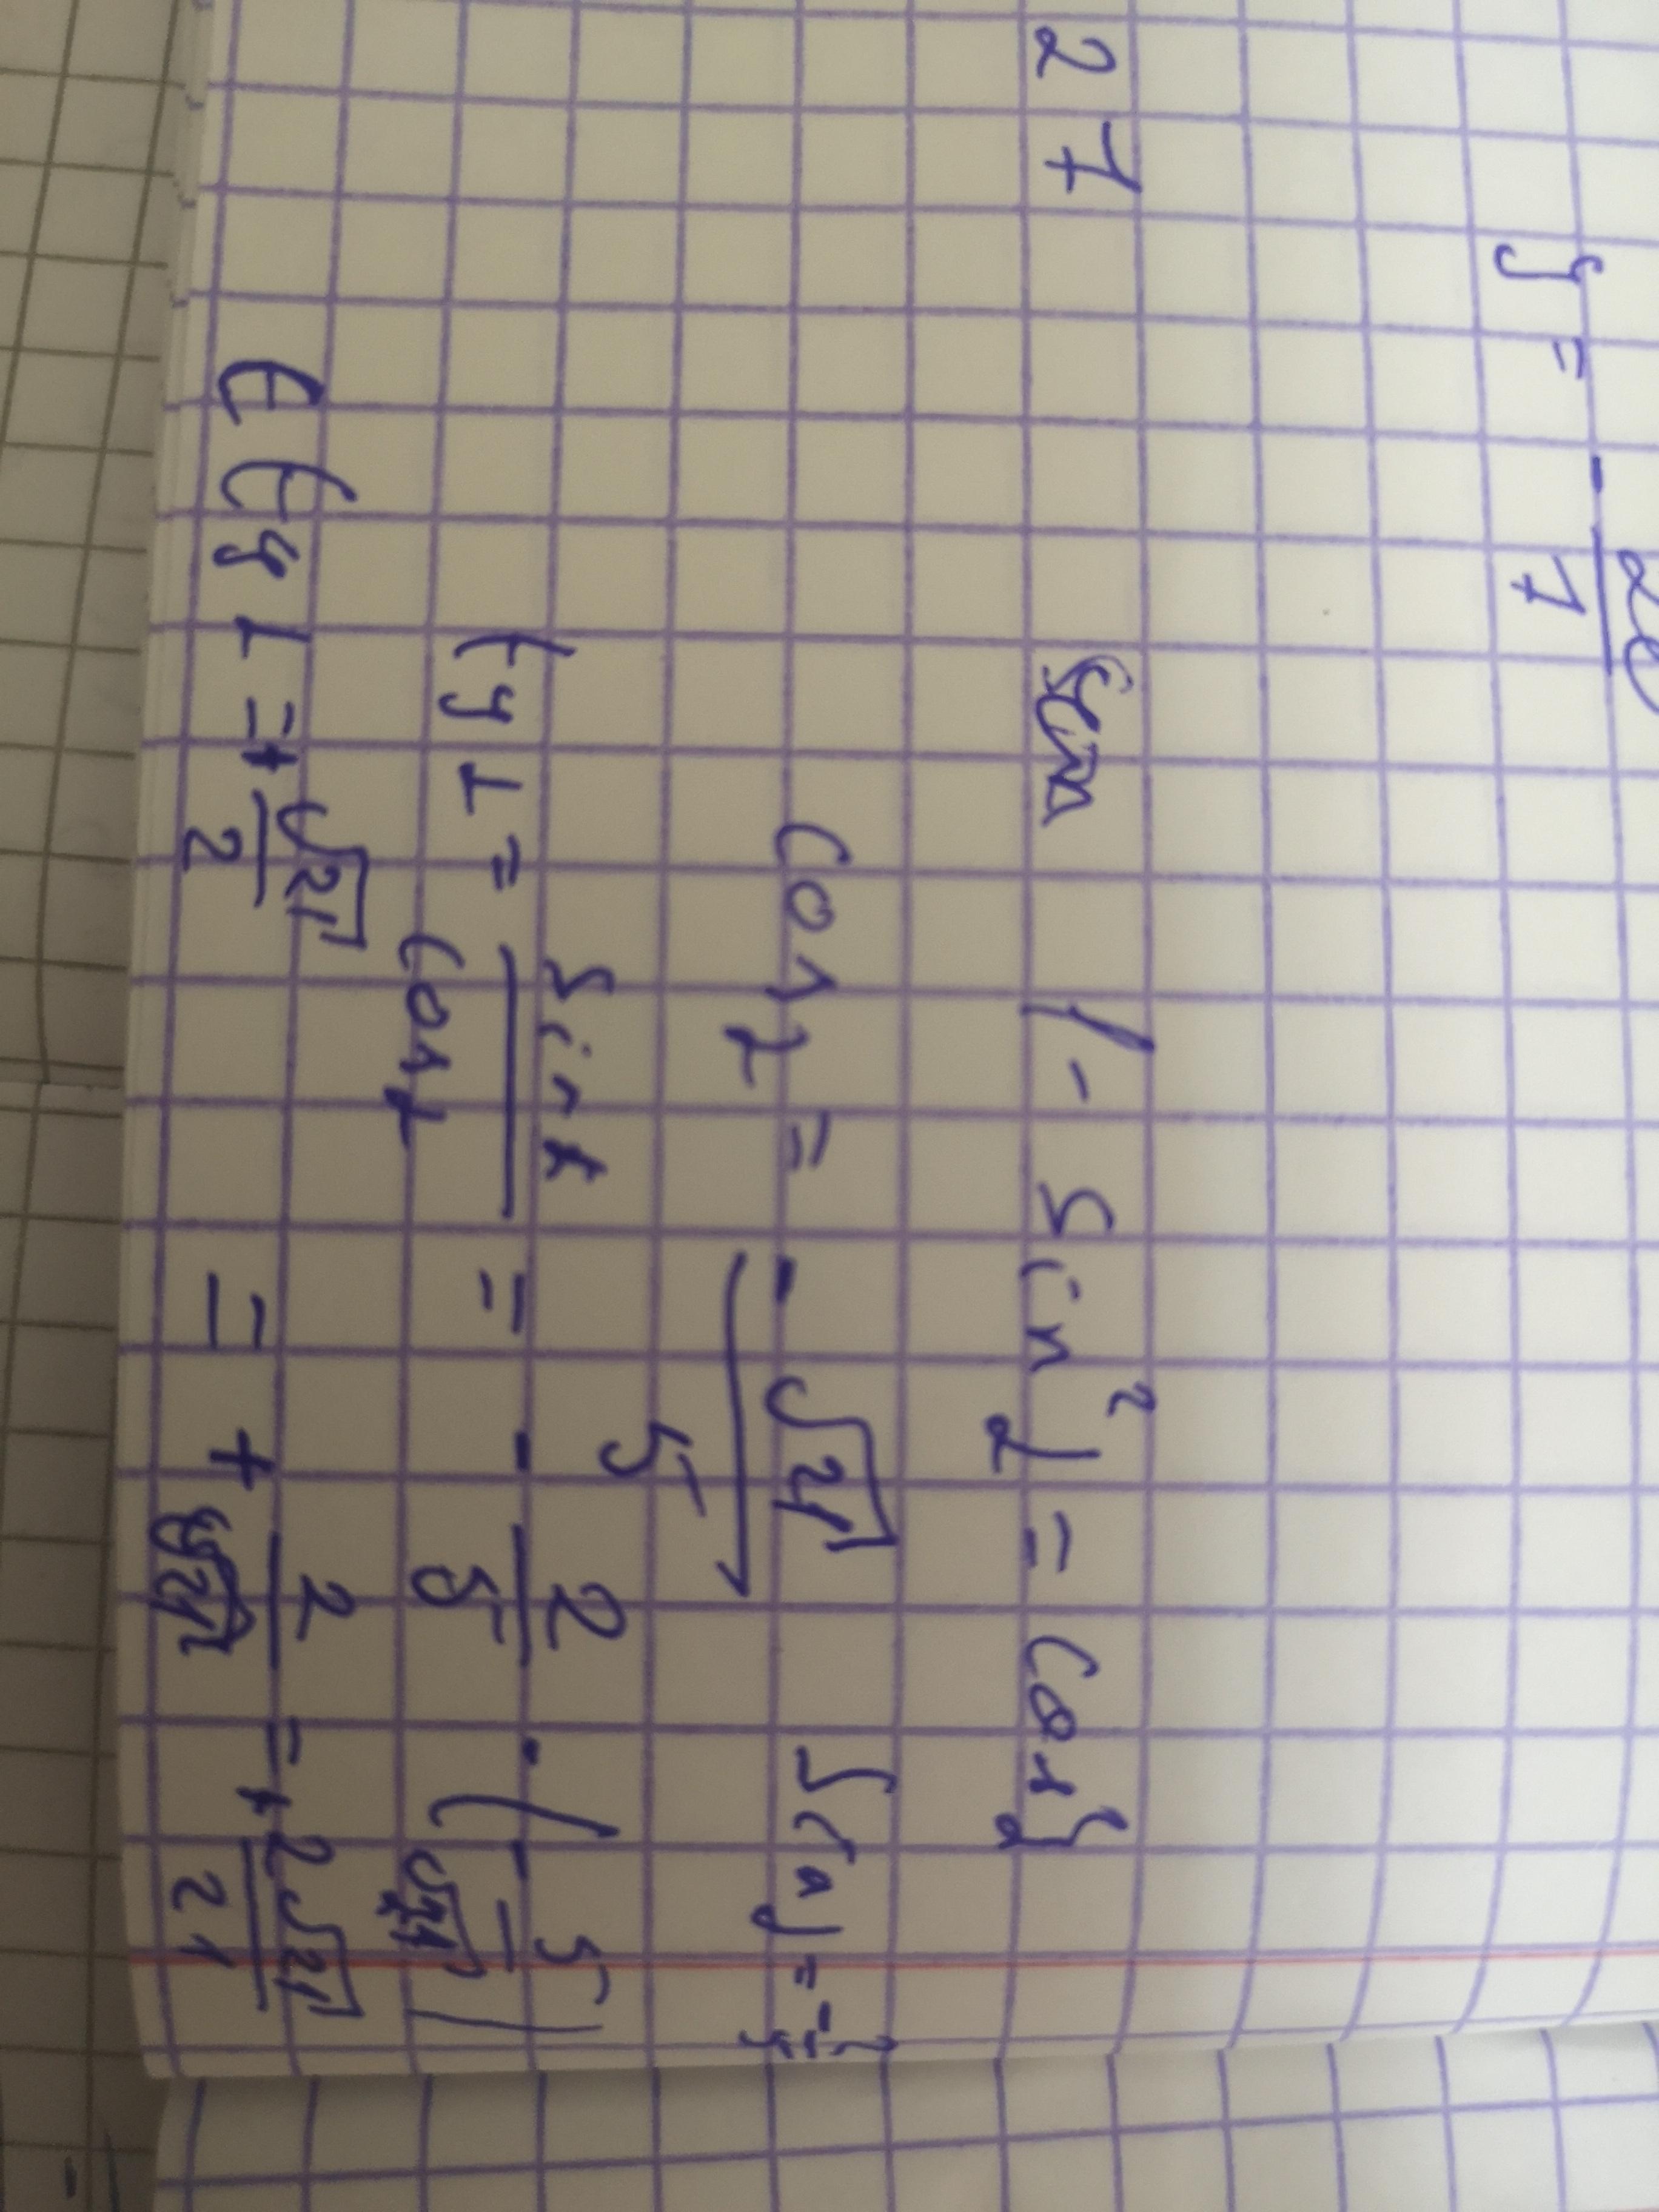 y = - 20/7
27
1 - sin² α = cos² α
cos α = - √21/5 sin α = - 2/5
tg α = sin α/cos α = - 2/5 · (- 5/√21)
= + 2/√21 = + 2√21/21
ctg α = + √21/2